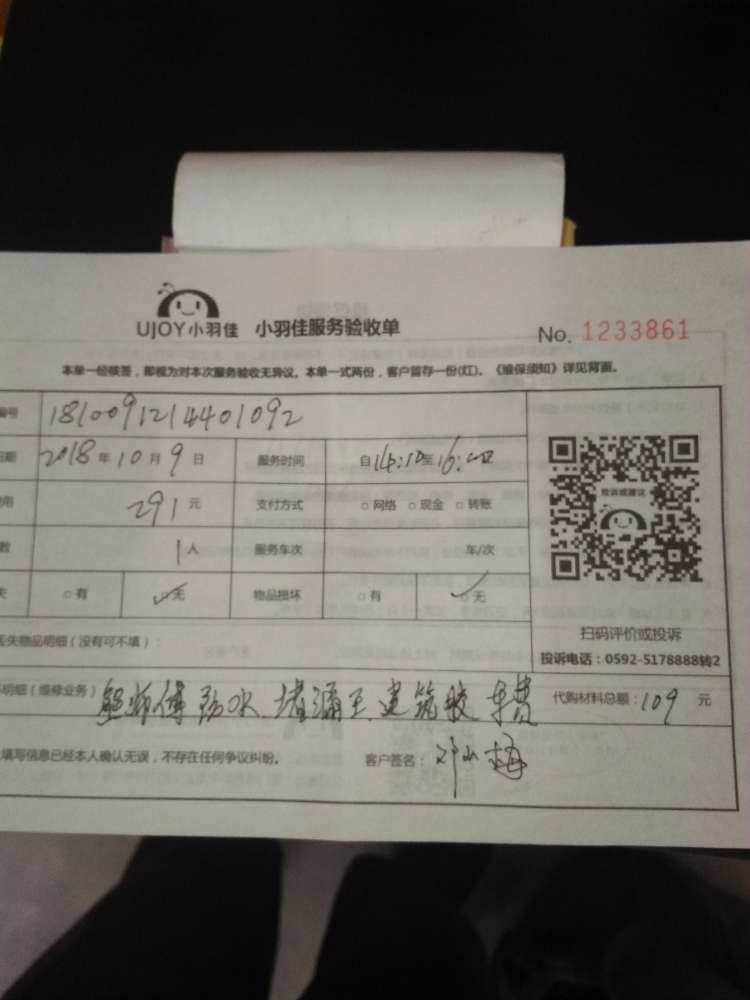 UJOY小羽佳 小羽佳服务验收单 No. 1233861
本单一经核签，即视为对本次服务验收无异议。本单一式两份，客户留存一份(红)。《维保须知》详见背面。
编号 1810091214401092
日期 2018年10月9日 服务时间 自14:10至16:00
用 291元 支付方式 □网络 □现金 □转账
数 1人 服务车次 车/次
失 □有 ☑无 物品损坏 □有 ☑无
投诉或建议
扫码评价或投诉
投诉电话：0592-5178888转2
丢失物品明细（没有可不填）：
明细（维修业务） 熊师傅防水 堵漏王 建筑胶 车费 代购材料总额：109元
填写信息已经本人确认无误，不存在任何争议纠纷。 客户签名：邓 梅